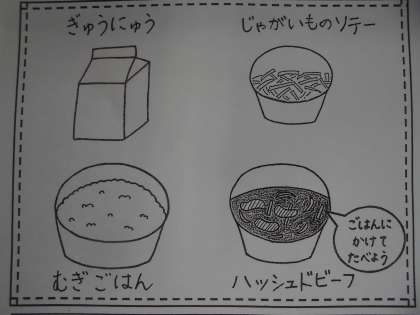 ぎゅうにゅう
じゃがいものソテー
むぎごはん
ハッシュドビーフ
ごはんに
かけて
たべよう